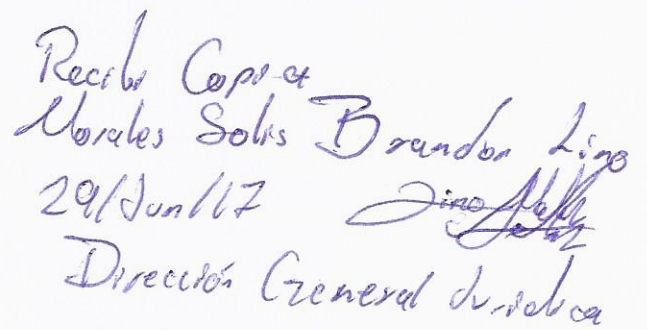 Recibi Copia
Morales Solis Brandon Lino
29/Jun/17
Dirección General Juridica